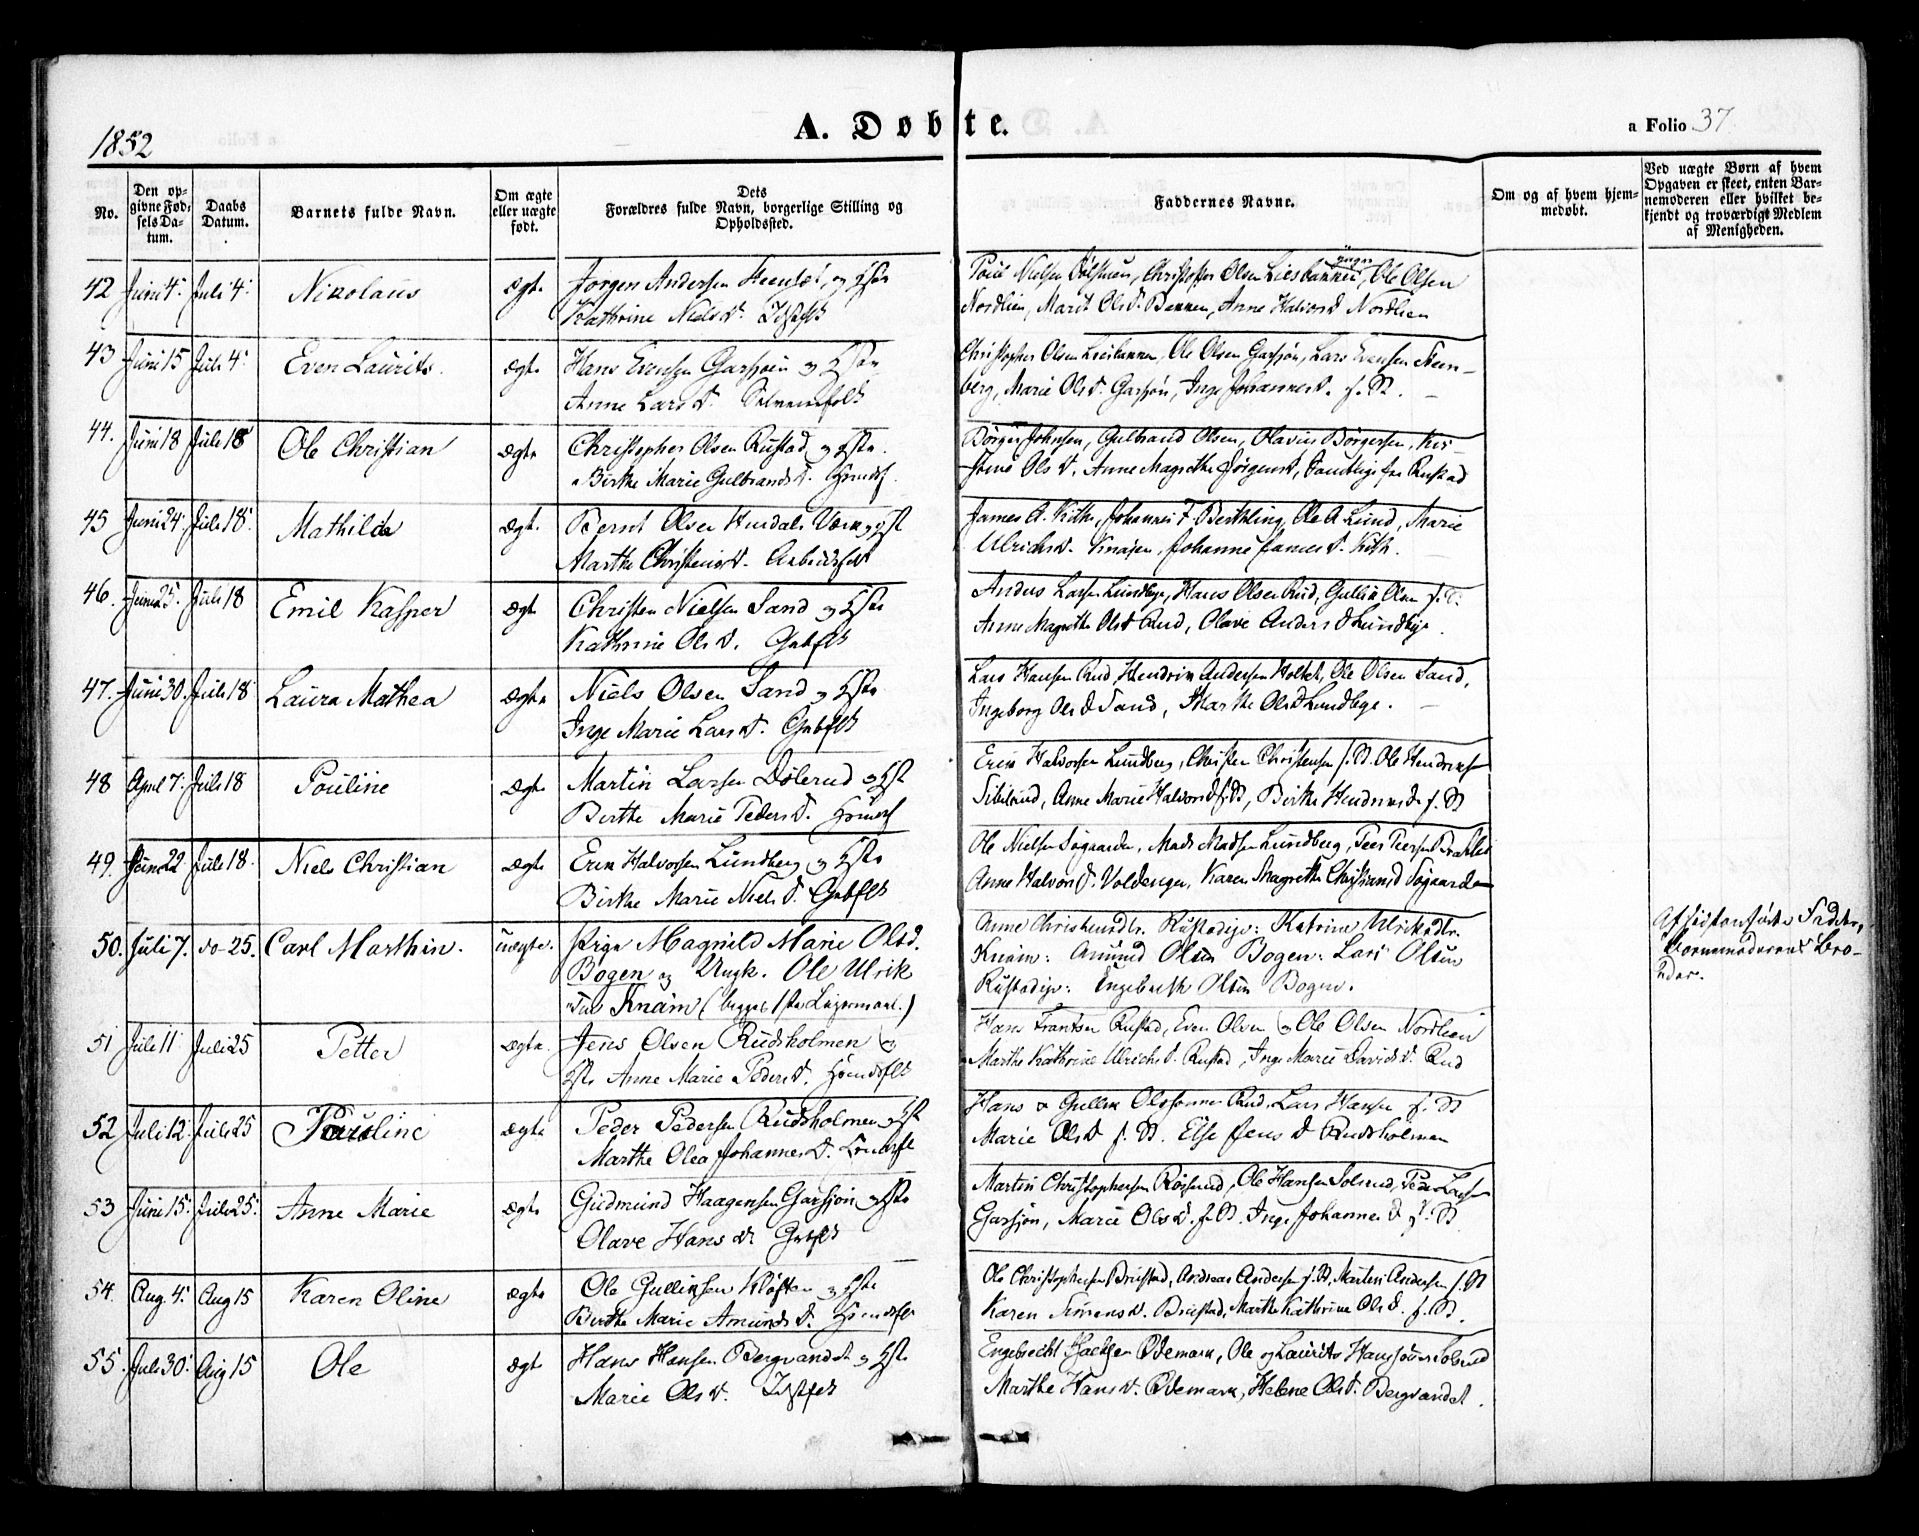 1852
A. Døbte.
a Folio 37
No.
Den op-
givne Fød-
sels Da-
tum.
Daabs
Datum.
Barnets fulde Navn.
Om ægte
eller uægte
født.
Dets
Forældres fulde Navn, borgerlige Stilling og
Opholdssted.
Faddernes Navne.
Om og af hvem hjem-
medøbt.
Ved uægte Børn af hvem
Opgaven er skeet, enten Bar-
nemoderen eller hvilket be-
kjendt og troværdigt Medlem
af Menigheden.
42 Juni 4. Juli 4. Nikolaus ægte Jørgen Andersen og Hstr
Kathrine Nielsd.
Poul Nielsen Christopher Olsen Liesbakken yngre, Ole Olsen
Nordlien, Marit Olsd. Bakken, Anne Halvorsd Nordlien
43 Juni 15 Juli 4. Even Laurits. ægte Hans Evensen Garsjøen og Hstr
Anne Larsd.
Christopher Olsen Liesbakken, Ole Olsen Garsjøn, Lars Evensen Steen-
berg, Marie Olsd. Garsjøn, Inge Johannesd. f. St.
44. Juni 18 Juli 18 Ole Christian ægte Christopher Olsen Rustad og Hstr.
Birthe Marie Gulbrandsd.
Børger Johnsen, Gulbrand Olsen, Olavius Børgersen, Kir-
stine Olsd. Anne Magrethe Jørgensd, Samtlige fra Rustad
45 Juni 24. Juli 18. Mathilde ægt. Bernt Olsen Hurdals Værk og Hst
Marthe Christensd. Arbeidsfolk
James A. Kith, Johannes F. Berthling, Ole A Lund, Marie
Ulrichsd. Knajen, Johanne Jamesd. Kith.
46. Juni 25. Juli 18 Emil Kasper ægte Christen Nielsen Sand og Hstr
Kathrine Olsd. Gbfolk
Anders Larsen Lundbye, Hans Olsen Rud, Gullik Olsen f. S.
Anne Magrethe Olsd Rud, Olave Andersd Lundbye.
47. Juni 30. Juli 18 Laura Mathea ægte Niels Olsen Sand og Hstr
Inge Marie Larsd. Gbfolk
Lars Hansen Rud, Hendrik Andersen Holtet, Ole Olsen Sand,
Ingeborg Olsd Sand, Marthe Olsd Lundbye.
48 April 7. Juli 18 Pouline ægte Martin Larsen Dølerud og Hst
Birthe Marie Pedersd.
Erik Halvorsen Lundberg, Christen Christensen f. St. Ole Hendriksen
Sibilrud, Anne Marie Halvorsd f. St, Birthe Hendriksd f. St
49. Juni 22 Juli 18. Niels Christian ægte Erik Halvorsen Lundberg og Hstr
Birthe Marie Nielsd. Gbfolk
Ole Nielsen Søgaarden, Mads Madsen Lundberg, Peer Peersen
Anne Halvorsd. Voldengen, Karen Magrethe Christiansd Søgaarden
50. Juli 7. do 25. Carl Marthin. uægte. Pige Magnild Marie Olsd.
Bogen og Ungk. Ole Ulrik
Knain (begges 1ste Leiermaal.)
Anne Christensdtr. Rustadeje: Katrine Ulriksdtr.
Knain: Amund Olsen Bogen: Lars Olsen
Rustadeje: Engebreth Olsen Bogen.
Af sidstanførte Fadder,
Barnemoderens Bro-
der.
51 Juli 11 Juli 25 Petter ægte. Jens Olsen Rudsholmen og
Hstr Anne Marie Pedersd.
Hans Frantsen Rustad, Even Olsen og Ole Olsen Nordlien
Marthe Kathrine Ulrichsd. Rustad, Inge Marie Davidsd. Rud
52 Juli 12 Juli 25 Pauline ægte Peder Pedersen Rudsholmen og Hst
Marthe Olea Johannesd.
Hans og Gullik Olssønner Rud, Lars Hansen f. St
Marie Olsd f. St. Else Jensd Rudsholmen
53 Juni 15. Juli 25. Anne Marie ægte Gudmund Haagensen Garsjøn og Hstr
Olave Hansdr Gbfolk
Martin Christophersen Røisrud, Ole Hansen Solsrud, Peder Larsen
Garsjøn, Marie Olsd. f. St. Inge Johannesd f. St
54. Aug. 4. Aug 15 Karen Oline ægte Ole Gulliksen Kløften og Hstr
Birthe Marie Amundsd.
Ole Christophersen Brustad, Andreas Andersen f. St, Martin Andersen f. St
Karen Simensd. Brustad, Marthe Kathrine Olsd. f. St.
55. Juli 30. Aug 15 Ole ægte Hans Hansen Bergvandet og Hstr
Marie Olsd.
Engebrecht Isachsen Ødemark, Ole og Laurits Hanssønner Solsrud
Marthe Hansd. Ødemark, Helene Olsd. Bergvandet.